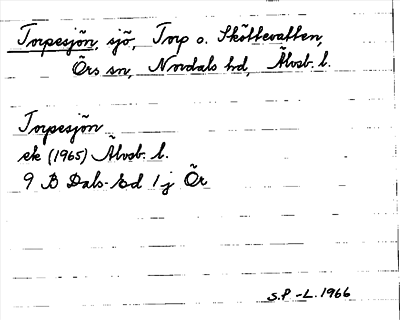 Torpesjön, sjö, Torp o. Sköttevatten,
Örs sn, Nordals hd, Älvsb. l.
Torpesjön
ek (1965) Älvsb. l.
9 B Dals-Ed 1 j Ör
S.P -L. 1966